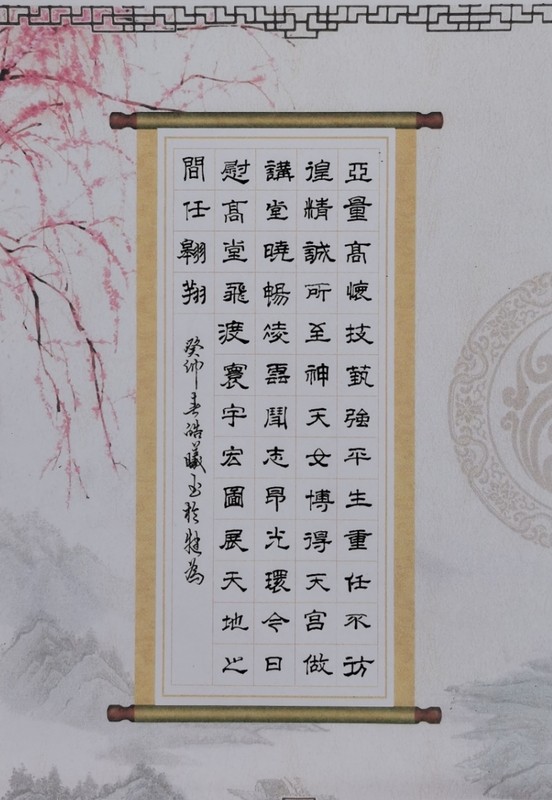 亞量高懷技藝強平生重任不彷
徨精誠所至神天女博得天宮做
講堂曉暢凌雲聞志昂光環今日
慰高堂飛渡寰宇宏圖展天地之
間任翱翔
癸卯春浩曦书於犍為